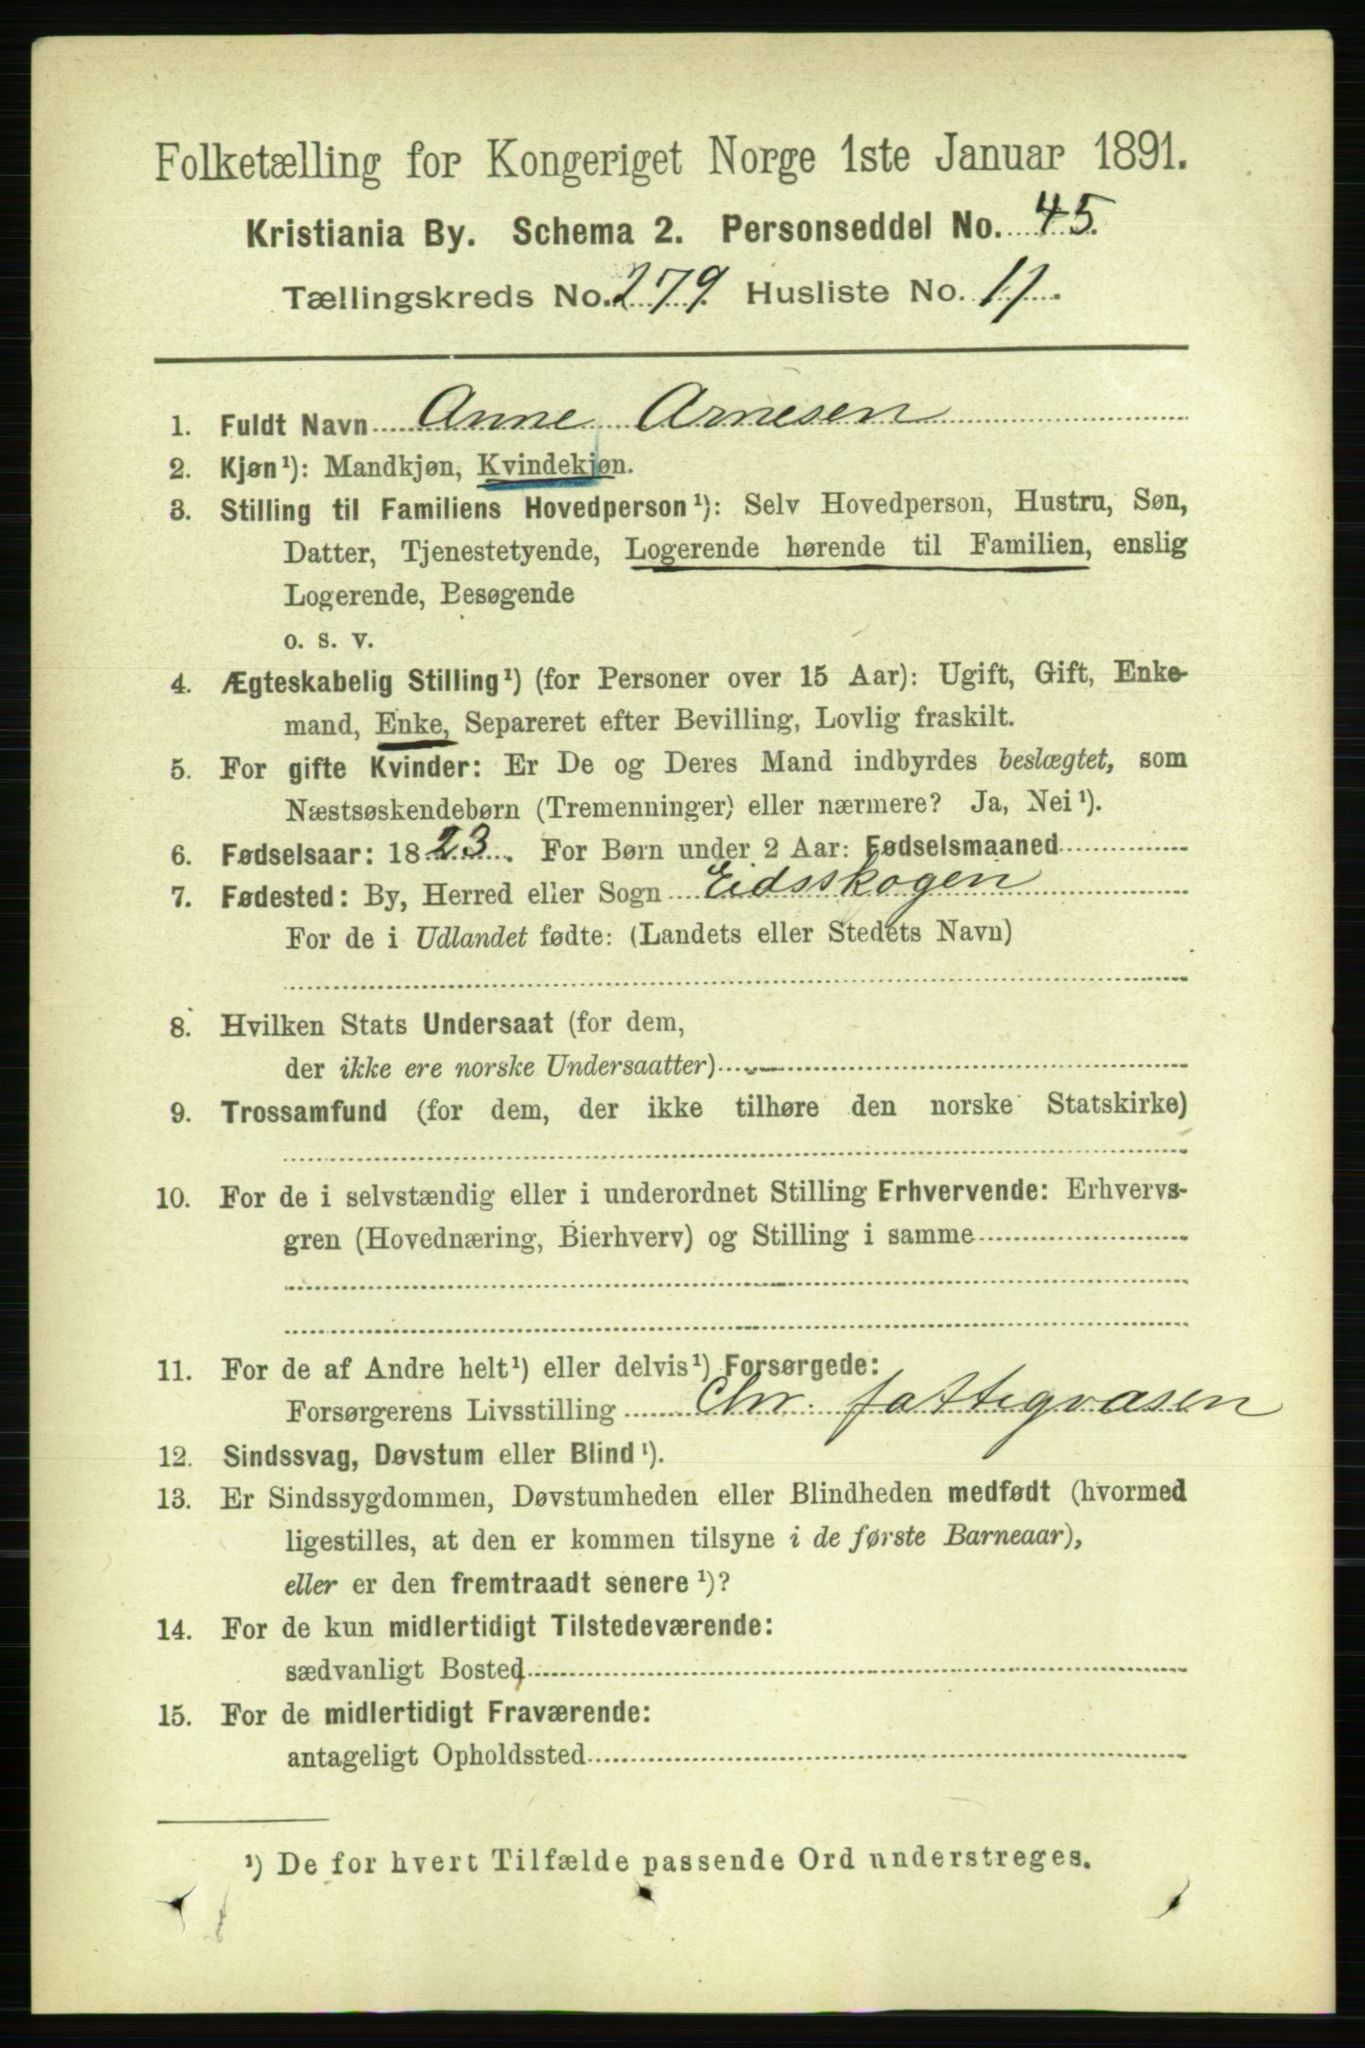 Folketælling for Kongeriget Norge 1ste Januar 1891.
Kristiania By. Schema 2. Personseddel No. 45.
Tællingskreds No. 279 Husliste No. 11.
1. Fuldt Navn Anne Arnesen
2. Kjøn¹): Mandkjøn, Kvindekjøn.
3. Stilling til Familiens Hovedperson¹): Selv Hovedperson, Hustru, Søn,
Datter, Tjenestetyende, Logerende hørende til Familien, enslig
Logerende, Besøgende
o. s. v.
4. Ægteskabelig Stilling¹) (for Personer over 15 Aar): Ugift, Gift, Enke-
mand, Enke, Separeret efter Bevilling, Lovlig fraskilt.
5. For gifte Kvinder: Er De og Deres Mand indbyrdes beslægtet, som
Næstsøskendebørn (Tremenninger) eller nærmere? Ja, Nei¹).
6. Fødselsaar: 1823. For Børn under 2 Aar: Fødselsmaaned
7. Fødested: By, Herred eller Sogn Eidsskogen
For de i Udlandet fødte: (Landets eller Stedets Navn)
8. Hvilken Stats Undersaat (for dem,
der ikke ere norske Undersaatter)
9. Trossamfund (for dem, der ikke tilhøre den norske Statskirke)
10. For de i selvstændig eller i underordnet Stilling Erhvervende: Erhvervs-
gren (Hovednæring, Bierhverv) og Stilling i samme
11. For de af Andre helt¹) eller delvis¹) Forsørgede:
Forsørgerens Livsstilling Chr. fattigvæsen
12. Sindssvag, Døvstum eller Blind¹).
13. Er Sindssygdommen, Døvstumheden eller Blindheden medfødt (hvormed
ligestilles, at den er kommen tilsyne i de første Barneaar),
eller er den fremtraadt senere¹)?
14. For de kun midlertidigt Tilstedeværende:
sædvanligt Bosted
15. For de midlertidigt Fraværende:
antageligt Opholdssted
¹) De for hvert Tilfælde passende Ord understreges.